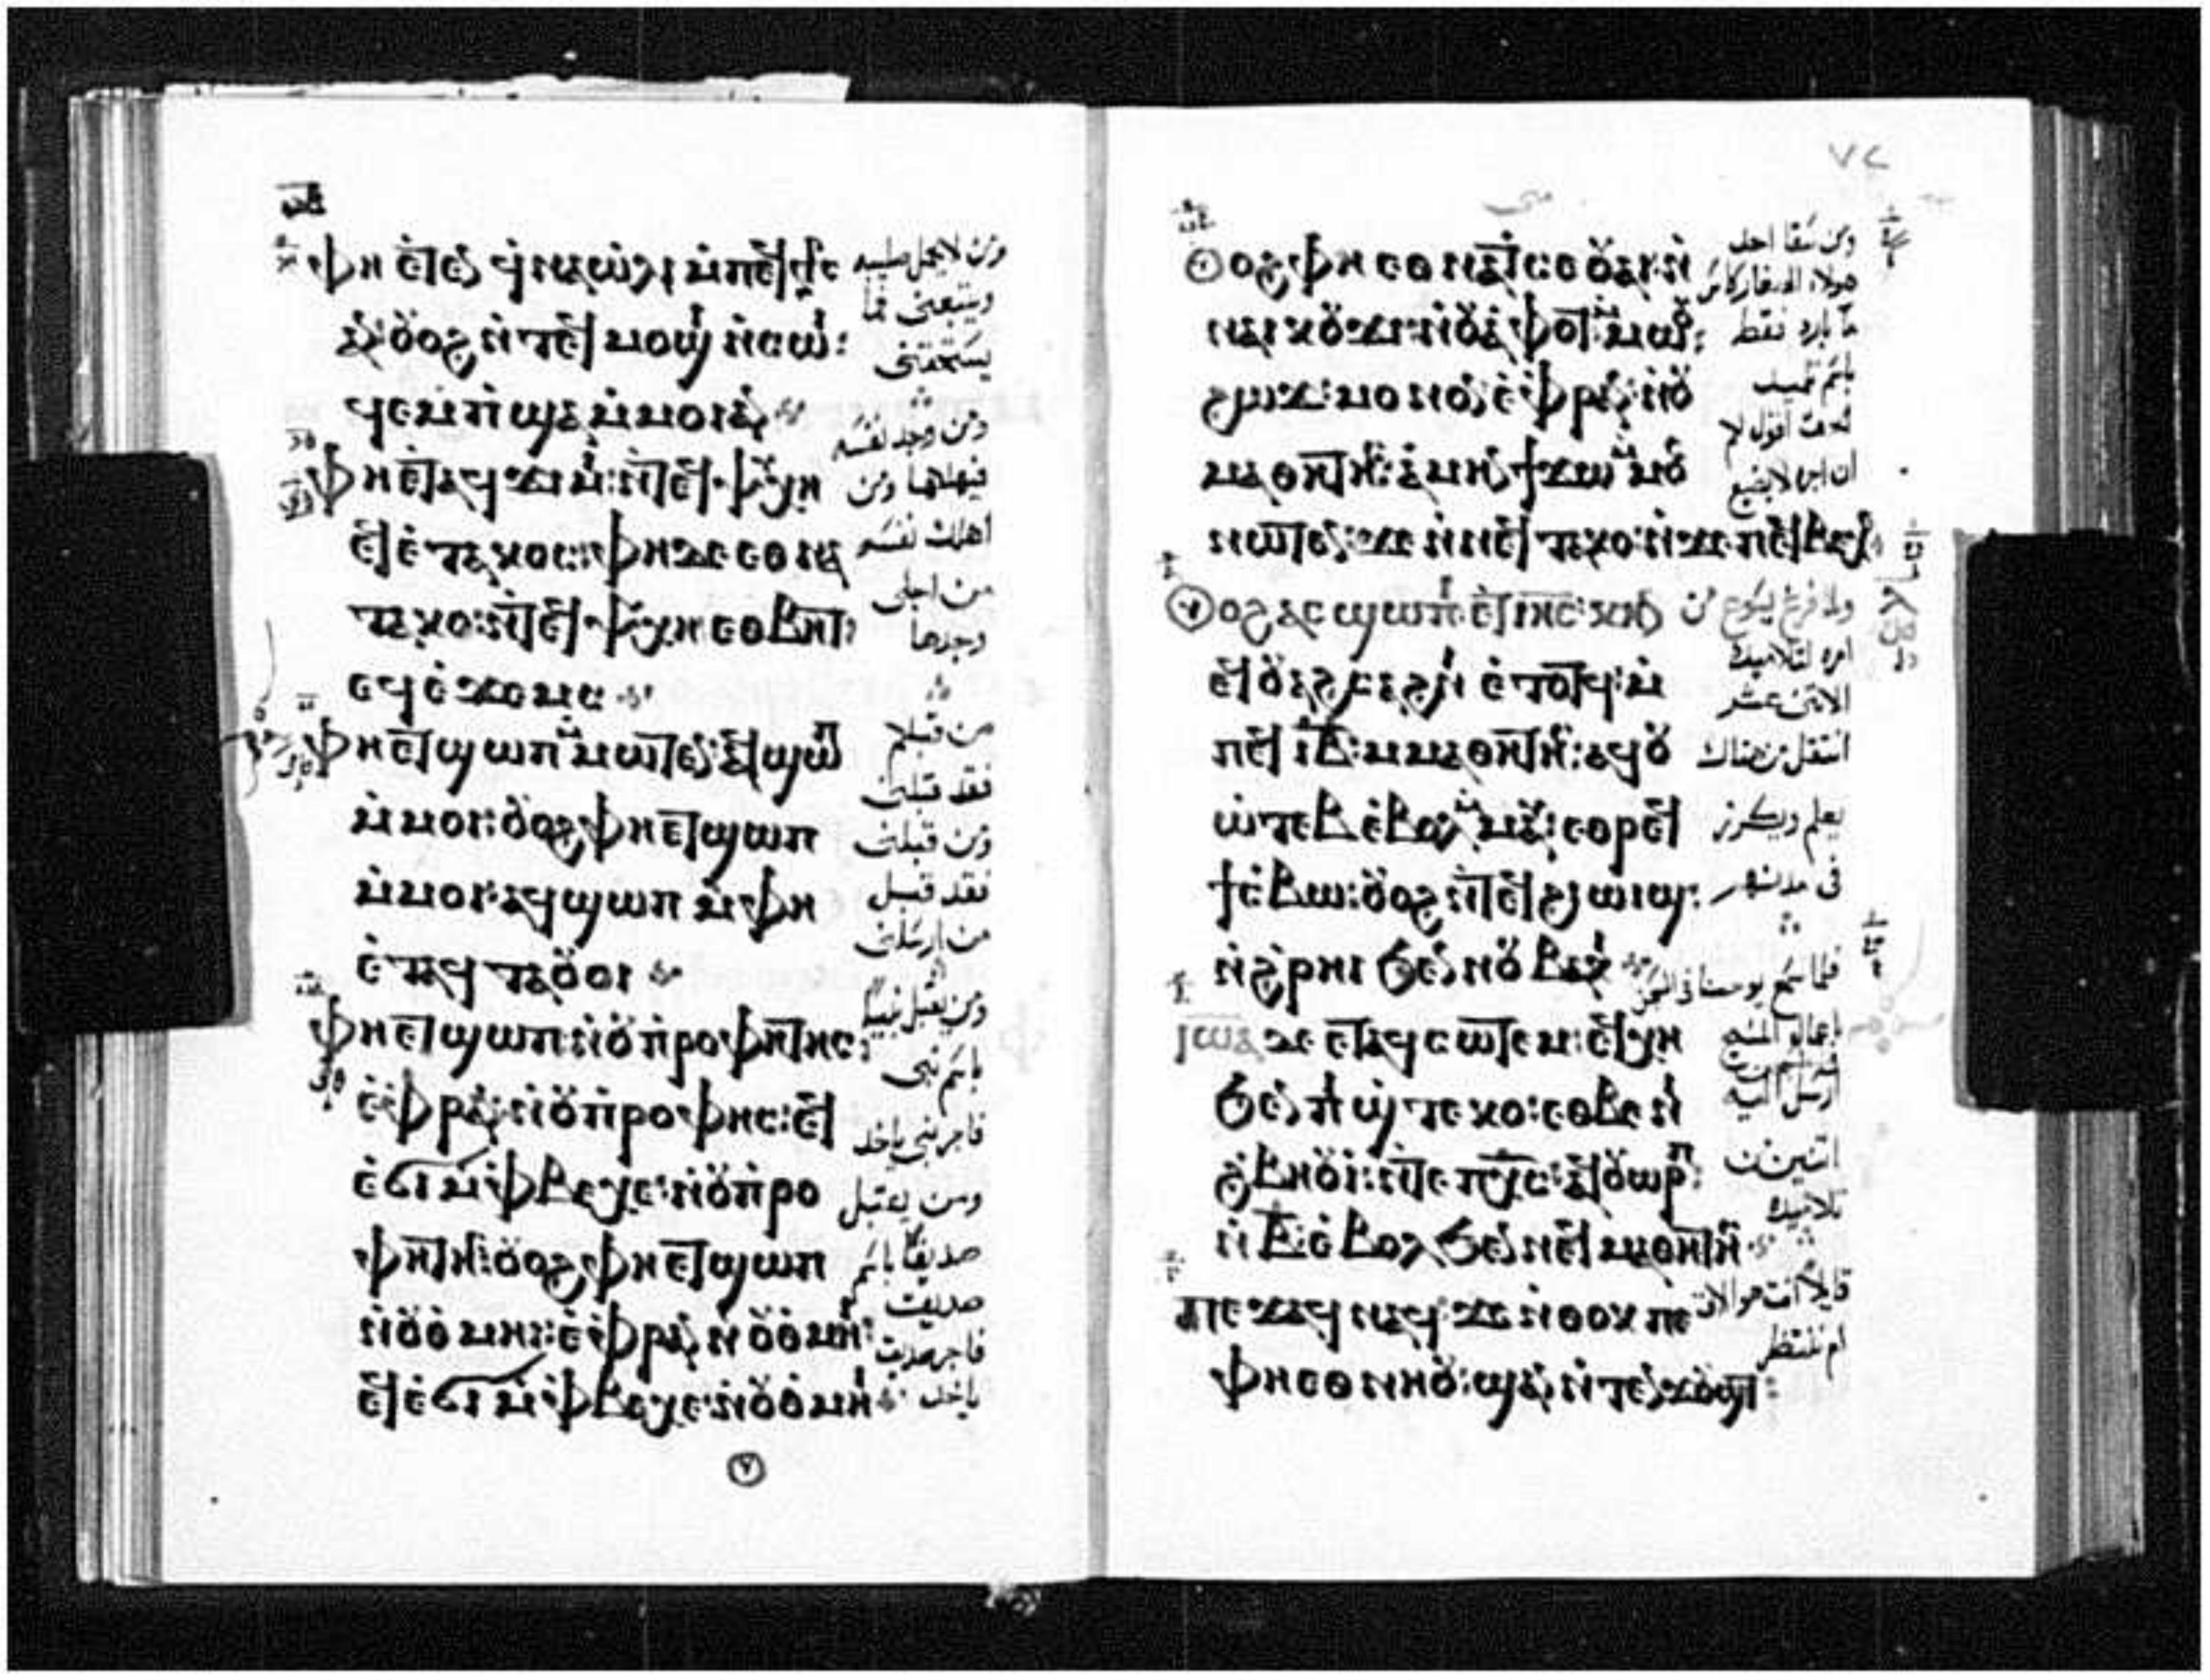 ⲫⲏ ⲉⲧⲉⲛ ϥⲛⲁⲱⲗⲓ ⲙ̀ⲡⲉϥ
ⲁⲛ ⲟⲩⲟϩ ⲛ̀ⲧⲉϥ ⲙⲟϣⲓ ⲛ̀ⲥⲱⲓ:
ϥⲉⲙ̀ⲡϣⲁ ⲙ̀ⲙⲟⲓ ⲁⲛ
ⲫⲏ ⲉⲧⲁϥϫⲓⲙⲓ: ⲛ̀ⲧⲉϥⲯⲩⲭⲏ
ⲉϥⲉ̀ⲧⲁⲕⲟⲥ: ⲫⲏ ⲇⲉ ⲉⲑⲛⲁ
ⲧⲁⲕⲟ: ⲛ̀ⲧⲉϥⲯⲩⲭⲏ ⲉⲑⲃⲏⲧ:
ⲉϥⲉ̀ϫⲉⲙⲥ
ⲫⲏ ⲉⲧϣⲱⲡ ⲙ̀ⲙⲱⲧⲉⲛ: ⲁϥϣⲱⲡ
ⲙ̀ⲙⲟⲓ: ⲟⲩⲟϩ ⲫⲏ ⲉⲧϣⲱⲡ
ⲙ̀ⲙⲟⲓ: ⲁϥϣⲱⲡ ⲙ̀ⲫⲏ
ⲉ̀ⲧⲁϥⲧⲁⲟⲩⲟⲓ
ⲫⲏ ⲉⲧϣⲱⲡ: ⲛ̀ⲟⲩⲡ̀ⲣⲟⲫⲏⲧⲏⲥ:
ⲉ̀ⲫⲣⲁⲛ: ⲛ̀ⲟⲩⲡ̀ⲣⲟⲫⲏⲥ: ⲉϥ
ⲉ̀ϭⲓ ⲙ̀ⲫⲃⲉⲭⲉ: ⲛ̀ⲟⲩⲡ̀ⲣⲟ
ⲫⲏⲧⲏⲥ: ⲟⲩⲟϩ ⲫⲏ ⲉⲧϣⲱⲡ
ⲛ̀ⲟⲩⲑ̀ⲙⲏⲓ: ⲉ̀ⲫⲣⲁⲛ ⲛ̀ⲟⲩⲑ̀ⲙⲏⲓ:
ⲉϥⲉ̀ϭⲓ ⲙ̀ⲫⲃⲉⲭⲉ: ⲛ̀ⲟⲩⲑ̀ⲙⲏⲓ
ومن لا يحمل صليبه
ويتبعنى فما
يستحقنى
ومن وجد نفسه
فيهلكها ومن
اهلك نفسه
من اجلى
وجدها
من قبلكم
فقد قبلنى
ومن قبلنى
فقد قبل
من ارسلنى
ومن يقبل نبيا
باسم نبى
فاجر نبى ياخد
ومن يقبل
صديقا باسم
صديق
فاجر صديق
ياخد
٧
٧٢
ⲟⲩⲟϩ ⲫⲏ ⲉⲑⲛⲁⲧⲥⲉ ⲟⲩⲁⲓ ⲛ̀
ⲛⲁⲓ ⲕⲟⲩϫⲓ: ⲛ̀ⲟⲩⲁⲫⲟⲧ ⲙ̀ⲙⲱⲟⲩ:
ϩⲱϫ: ⲙⲟⲛⲟⲛ ⲉ̀ⲫⲣⲁⲛ: ⲛ̀ⲟⲩ
ⲙⲁⲑⲏⲧⲏⲥ: ⲁⲙⲏⲛ ϯϫⲱ ⲙ̀ⲙⲟⲥ
ⲛⲱⲧⲉⲛ: ϫⲉ ⲛ̀ⲛⲉϥⲧⲁⲕⲟ: ⲛ̀ϫⲉ ⲡⲉϥⲃⲉⲭⲉ
ⲟⲩⲟϩ ⲁⲥϣⲱⲡⲓ ⲉⲧⲁ ⲓⲏⲥ: ⲕⲏⲛ
ⲉϥⲟⲩⲁϩⲥⲁϩⲛⲓ ⲉ̀ⲧⲟⲧϥ: ⲙ̀
ⲡⲉϥ ⲓⲃ: ⲙⲙⲁⲑⲏⲧⲏⲥ: ⲁϥⲟⲩ
ⲱ̀ⲧⲉⲃ ⲉ̀ⲃⲟⲗ ⲙ̀ⲙⲁⲩ: ⲉⲑⲣⲉϥ
ϯⲥ̀ⲃⲱ: ⲟⲩⲟϩ ⲛ̀ⲧⲉϥϩⲓⲱⲓϣ:
ⲛ̀ϩ̀ⲣⲏⲓ ϧⲉⲛ ⲛⲟⲩⲃⲁⲕⲓ
ⲓⲱⲁ ⲇⲉ ⲉⲧⲁϥⲥⲱⲧⲉⲙ: ⲉϥⲭⲏ
ϧⲉⲛ ⲡⲓϣ̀ⲧⲉⲕⲟ: ⲉⲑⲃⲉ ⲛⲓ
ϩ̀ⲃⲏⲟⲩⲓ: ⲛ̀ⲧⲉ ⲡⲭⲥ: ⲁϥⲟⲩⲱⲣⲡ:
ⲛ̀ⲃ: ⲉ̀ⲃⲟⲗ ϧⲉⲛ ⲛⲉϥⲙⲁⲑⲏⲧⲏⲥ
ⲡⲉϫⲁϥ ⲛⲁϥ: ϫⲉ ⲛ̀ⲑⲟⲕ ⲡⲉ
ⲫⲏ ⲉⲑⲛⲏⲟⲩ: ϣⲁⲛ ⲛ̀ⲧⲉⲛϫⲟⲩϣⲧ:
ومن سقا احد
هولاء الصغار كاس
ما بارد فقط
باسم تلميد
اقول لكم
ان اجره لا يضيع
ولما فرغ يسوع من
امره لتلاميده
الاثنى عشر
انتقل من هناك
يعلم ويكرز
فى مدنهم
فلما سمع يوحنا فى السجن
باعمال المسيح
ارسل اليه
اثنين من
تلاميده
قايلا انت هو الات
ام ننتظر